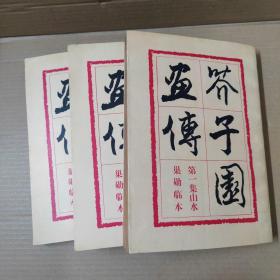 芥子園
畫傳
第一集山水
巢勛臨本
畫傳
巢勛臨本
畫傳
巢勛臨本